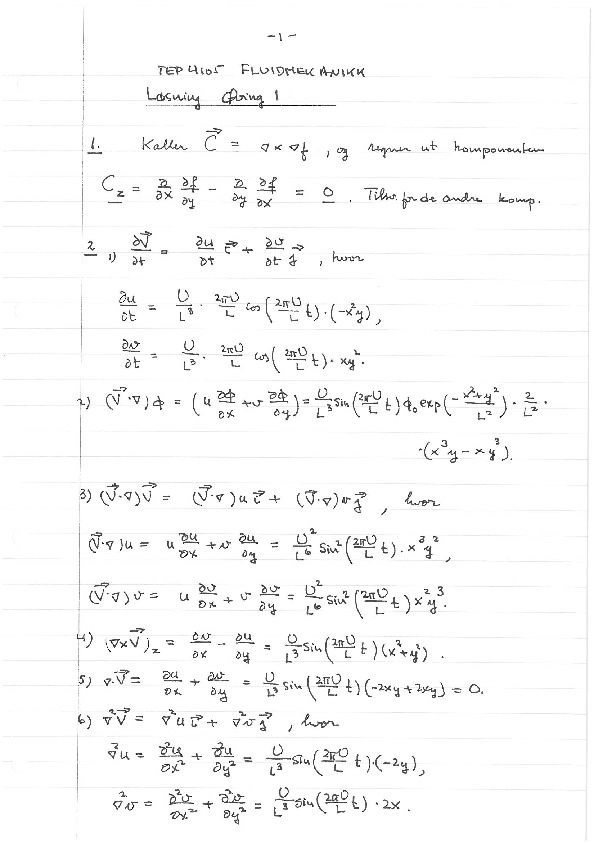 -1-
TEP 4105 FLUIDMEKANIKK
Løsning Øving 1
1. Kaller C⃗ = ∇ x ∇f , og regner ut komponenten
C_z = ∂/∂x ∂f/∂y - ∂/∂y ∂f/∂x = 0 . Tilsv. for de andre komp.
2 1) ∂V⃗/∂t = ∂u/∂t i⃗ + ∂v/∂t j⃗ , hvor
∂u/∂t = U/L³ · 2πU/L cos(2πU/L t)·(-x²y),
∂v/∂t = U/L³ · 2πU/L cos(2πU/L t)· xy².
2) (V⃗·∇)ϕ = (u ∂ϕ/∂x + v ∂ϕ/∂y) = U/L³ sin(2πU/L t) ϕ₀ exp(- x²+y²/L²) · 2/L² ·
·(x³y - xy³).
3) (V⃗·∇)V⃗ = (V⃗·∇)u i⃗ + (V⃗·∇)v j⃗ , hvor
(V⃗·∇)u = u ∂u/∂x + v ∂u/∂y = U²/L⁶ sin²(2πU/L t) · x³y² ,
(V⃗·∇)v = u ∂v/∂x + v ∂v/∂y = U²/L⁶ sin²(2πU/L t) x²y³.
4) (∇xV⃗)_z = ∂v/∂x - ∂u/∂y = U/L³ sin(2πU/L t)(x²+y²) .
5) ∇·V⃗ = ∂u/∂x + ∂v/∂y = U/L³ sin(2πU/L t)(-2xy + 2xy) = 0.
6) ∇²V⃗ = ∇²u i⃗ + ∇²v j⃗ , hvor
∇²u = ∂²u/∂x² + ∂²u/∂y² = U/L³ sin(2πU/L t)·(-2y),
∇²v = ∂²v/∂x² + ∂²v/∂y² = U/L³ sin(2πU/L t) · 2x .